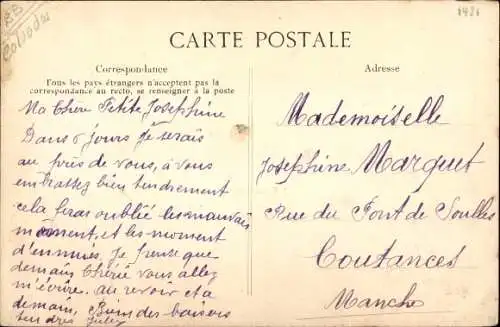 BB
Calvados
1421
CARTE POSTALE
Correspondance
Tous les pays étrangers n'acceptent pas la
correspondance au recto, se renseigner à la poste
Adresse
Ma Chère Petite Josephine
Dans 5 jours Je serais
au près de vous, à vous
embrassez bien tendrement
cela feras oublié les mauvais
moment, et les moment
d'ennuies, Je pense que
demain Chérie vous allez
m'écrire. au revoir et a
demain, Bien des baisers
tendres Jules
Mademoiselle
Josephine Marquet
Rue du Pont de Soulles
Coutances
Manche